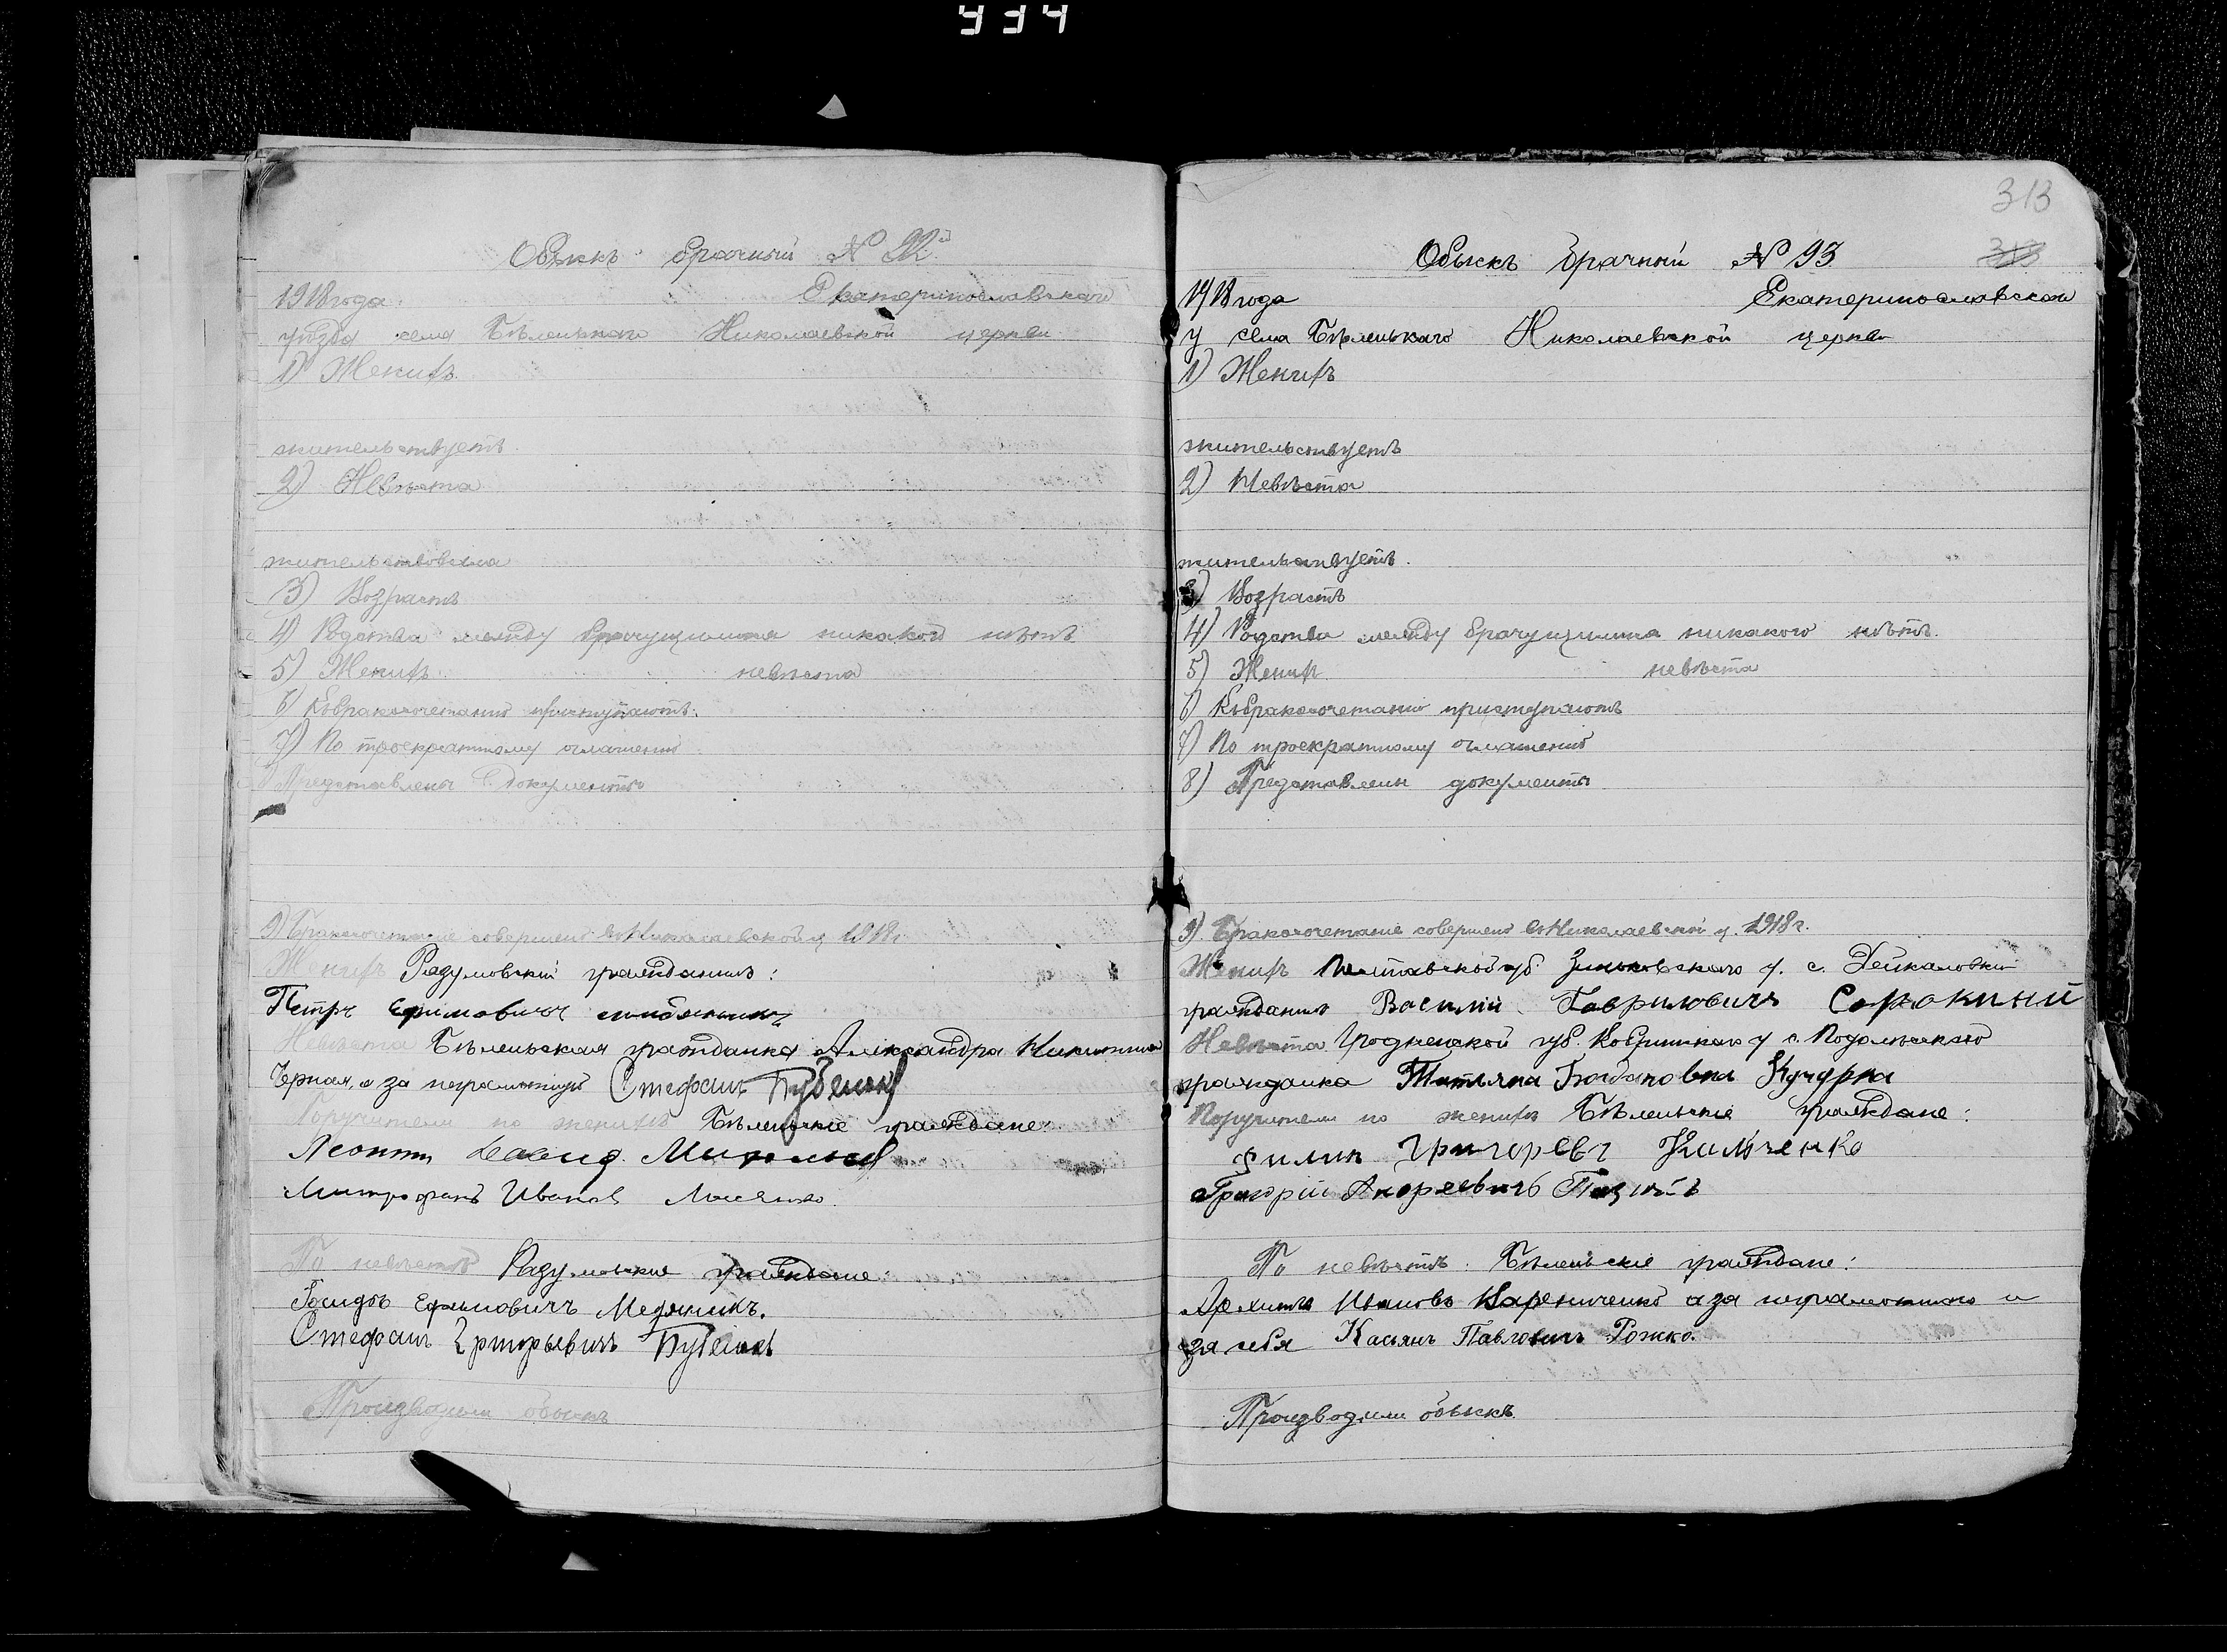 334
Обыскъ брачный № 92й
1918 года. Екатеринославскаго
уѣзда села Бѣленькаго Николаевской церкви
1) Женихъ
жительствуетъ
2) Невѣста
жительствовала
3) Возрастъ
4) Родства между брачущимися никакого нѣтъ
5) Женихъ невѣста
6) Къ бракосочетанію приступаютъ.
7) По троекратному оглашенію
Представлены документы
9) Бракосочетаніе совершено въ Николаевской ц. 1918 г.
Женихъ Разумовскій гражданинъ:
Петръ Ефимовичъ
Невѣста Бѣленьская гражданка Александра Никитина
Черная, а за неграмотную Стефанъ Бубенко
Поручители по женихѣ Бѣленьскіе граждане:
Леонтій
Митрофанъ Иванов
По невѣстѣ Разумовскіе граждане:
Ефимовичъ Медяникъ.
Стефанъ Григорьевичъ Бубенко
Производили обыскъ
313
Обыскъ брачный № 93
1918 года Екатеринославскаго
у села Бѣленькаго Николаевской церкви
1) Женихъ
жительствуетъ
2) Невѣста
жительствуетъ.
3) Возрастъ
4) Родства между брачущимися никакого нѣтъ.
5) Женихъ невѣста
6) Къ бракосочетанію приступаютъ
7) По троекратному оглашенію
8) Представлены документы
9) Бракосочетаніе совершено въ Николаевской ц. 1918 г.
Женихъ Полтавской губ. Зиньковскаго у. с. Дейкаловки
гражданинъ Василій Гавриловичъ Сорокиный
Невѣста Гродненской губ. Кобринскаго у с.
гражданка Татьяна Богдановна Кучурка
Поручители по женихѣ Бѣленьскіе граждане:
Филип Григоревг Кильченко
Григорій Андреевичъ
По невѣстѣ. Бѣленьскіе граждане:
Архипъ Ивановъ а за неграмотнаго и
за себя Касьянъ Павловичъ Рожко.
Производили обыскъ